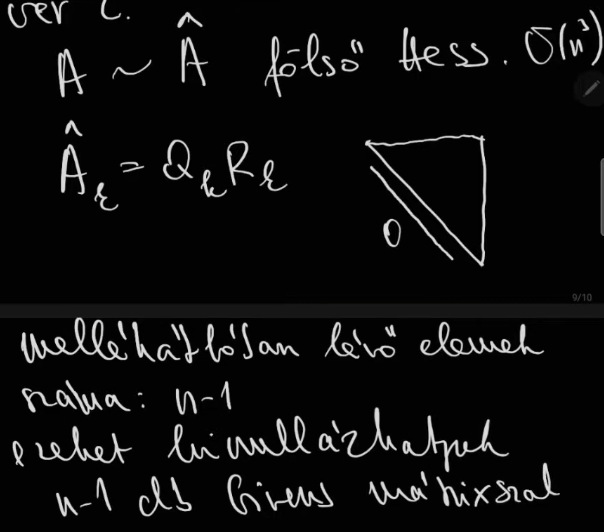 ver C.
A ~ Â fölső Hess. O(n³)
Âₖ = QₖRₖ
0
9/10
mellékátlósan lévő elemek
száma: n-1
ezeket kinullázhatjuk
n-1 db Givens mátrixszal